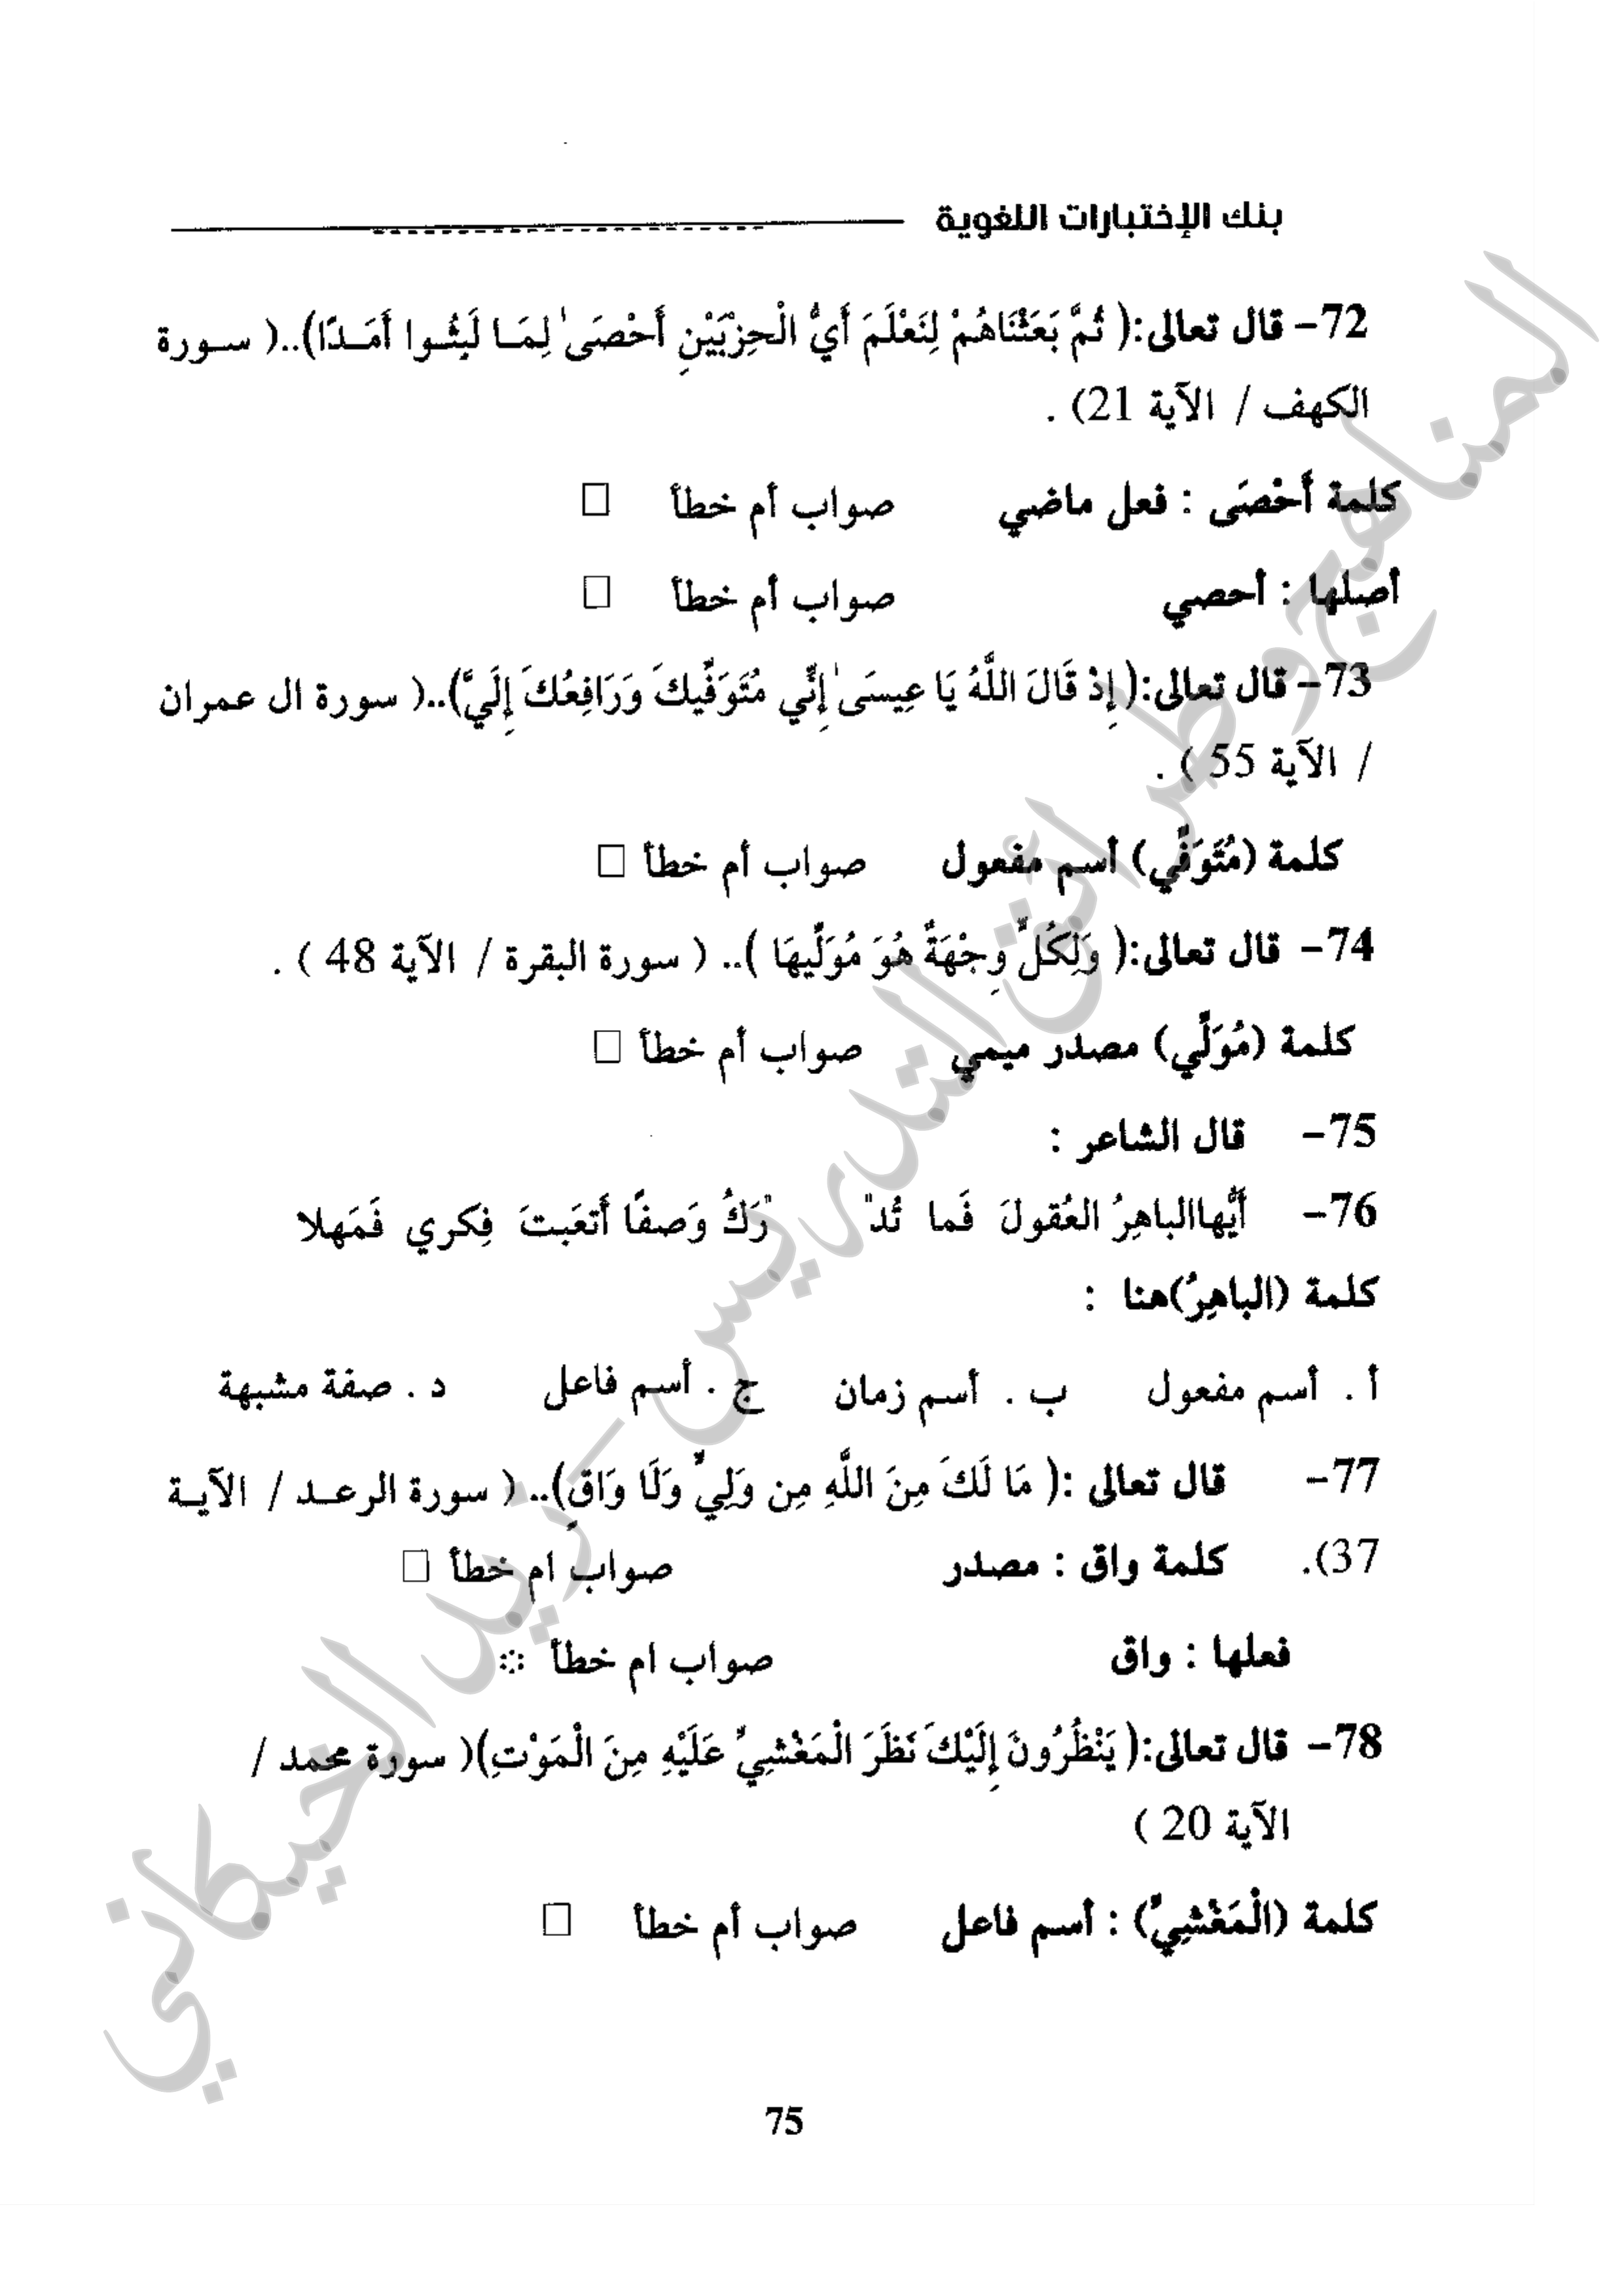 بنك الإختبارات اللغوية
72- قال تعالى:( ثُمَّ بَعَثْنَاهُمْ لِنَعْلَمَ أَيُّ الْحِزْبَيْنِ أَحْصَىٰ لِمَـا لَبِثُـوا أَمَـدًا)..( سـورة
الكهف / الآية 21) .
كلمة أَحْصَى : فعل ماضي صواب أم خطأ □
أصلها : أحصي صواب أم خطأ □
73- قال تعالى:( إِذْ قَالَ اللَّهُ يَا عِيسَىٰ إِنِّي مُتَوَفِّيكَ وَرَافِعُكَ إِلَيَّ)..( سورة ال عمران
/ الآية 55 ) .
كلمة (مُتَوَفِّي) أسم مفعول صواب أم خطأ □
74- قال تعالى:( وَلِكُلٍّ وِجْهَةٌ هُوَ مُوَلِّيهَا ).. ( سورة البقرة / الآية 48 ) .
كلمة (مُوَلِّي) مصدر ميمي صواب أم خطأ □
75- قال الشاعر :
76- أَيُّهاالباهِرُ العُقولَ فَما تُد" "رَكُ وَصفًا أَتعَبتَ فِكري فَمَهلا
كلمة (الباهِرُ)هنا :
أ . أسم مفعول ب . أسم زمان ج . أسم فاعل د . صفة مشبهة
77- قال تعالى :( مَا لَكَ مِنَ اللَّهِ مِن وَلِيٍّ وَلَا وَاقٍ).. ( سورة الرعـد / الآيـة
37). كلمة واق : مصدر صواب ام خطأ □
فعلها : واق صواب ام خطأ ⁘
78- قال تعالى:( يَنْظُرُونَ إِلَيْكَ نَظَرَ الْمَغْشِيِّ عَلَيْهِ مِنَ الْمَوْتِ)( سورة محمد /
الآية 20 )
كلمة (الْمَغْشِيِّ) : أسم فاعل صواب أم خطأ □
75
المناهج وطرائق التدريس - زيد الخيكاني